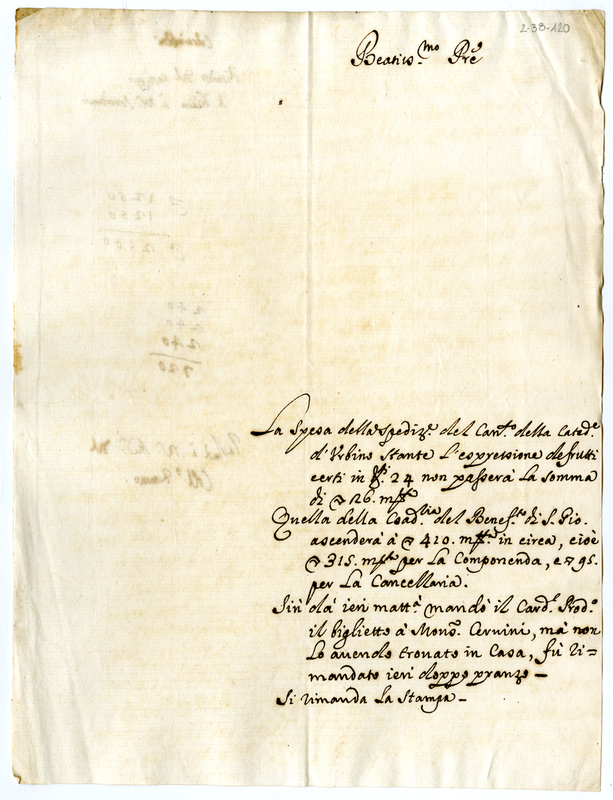 2-38-120
Beatiss.mo Prē
La Spesa della spediz.e del Can.to della Cated.e
d'Urbino stante l'espressione de frutti
certi in 24 non passerà la somma
di 126. m.ta
Quella della Coad.lia del Benef.o di S. Gio.
ascenderà à 410. m.ta in circa, cioè
315. m.ta per la Componenda, e 95.
per la Cancellaria.
Sin dà ieri matt.a mandò il Card.l Prod.o
il biglietto à Mons.r Cervini, mà non
lo avendo trovato in Casa, fù ri=
mandato ieri doppo pranzo —
Si rimanda la Stampa —
1250
1250
2500
240
240
240
720